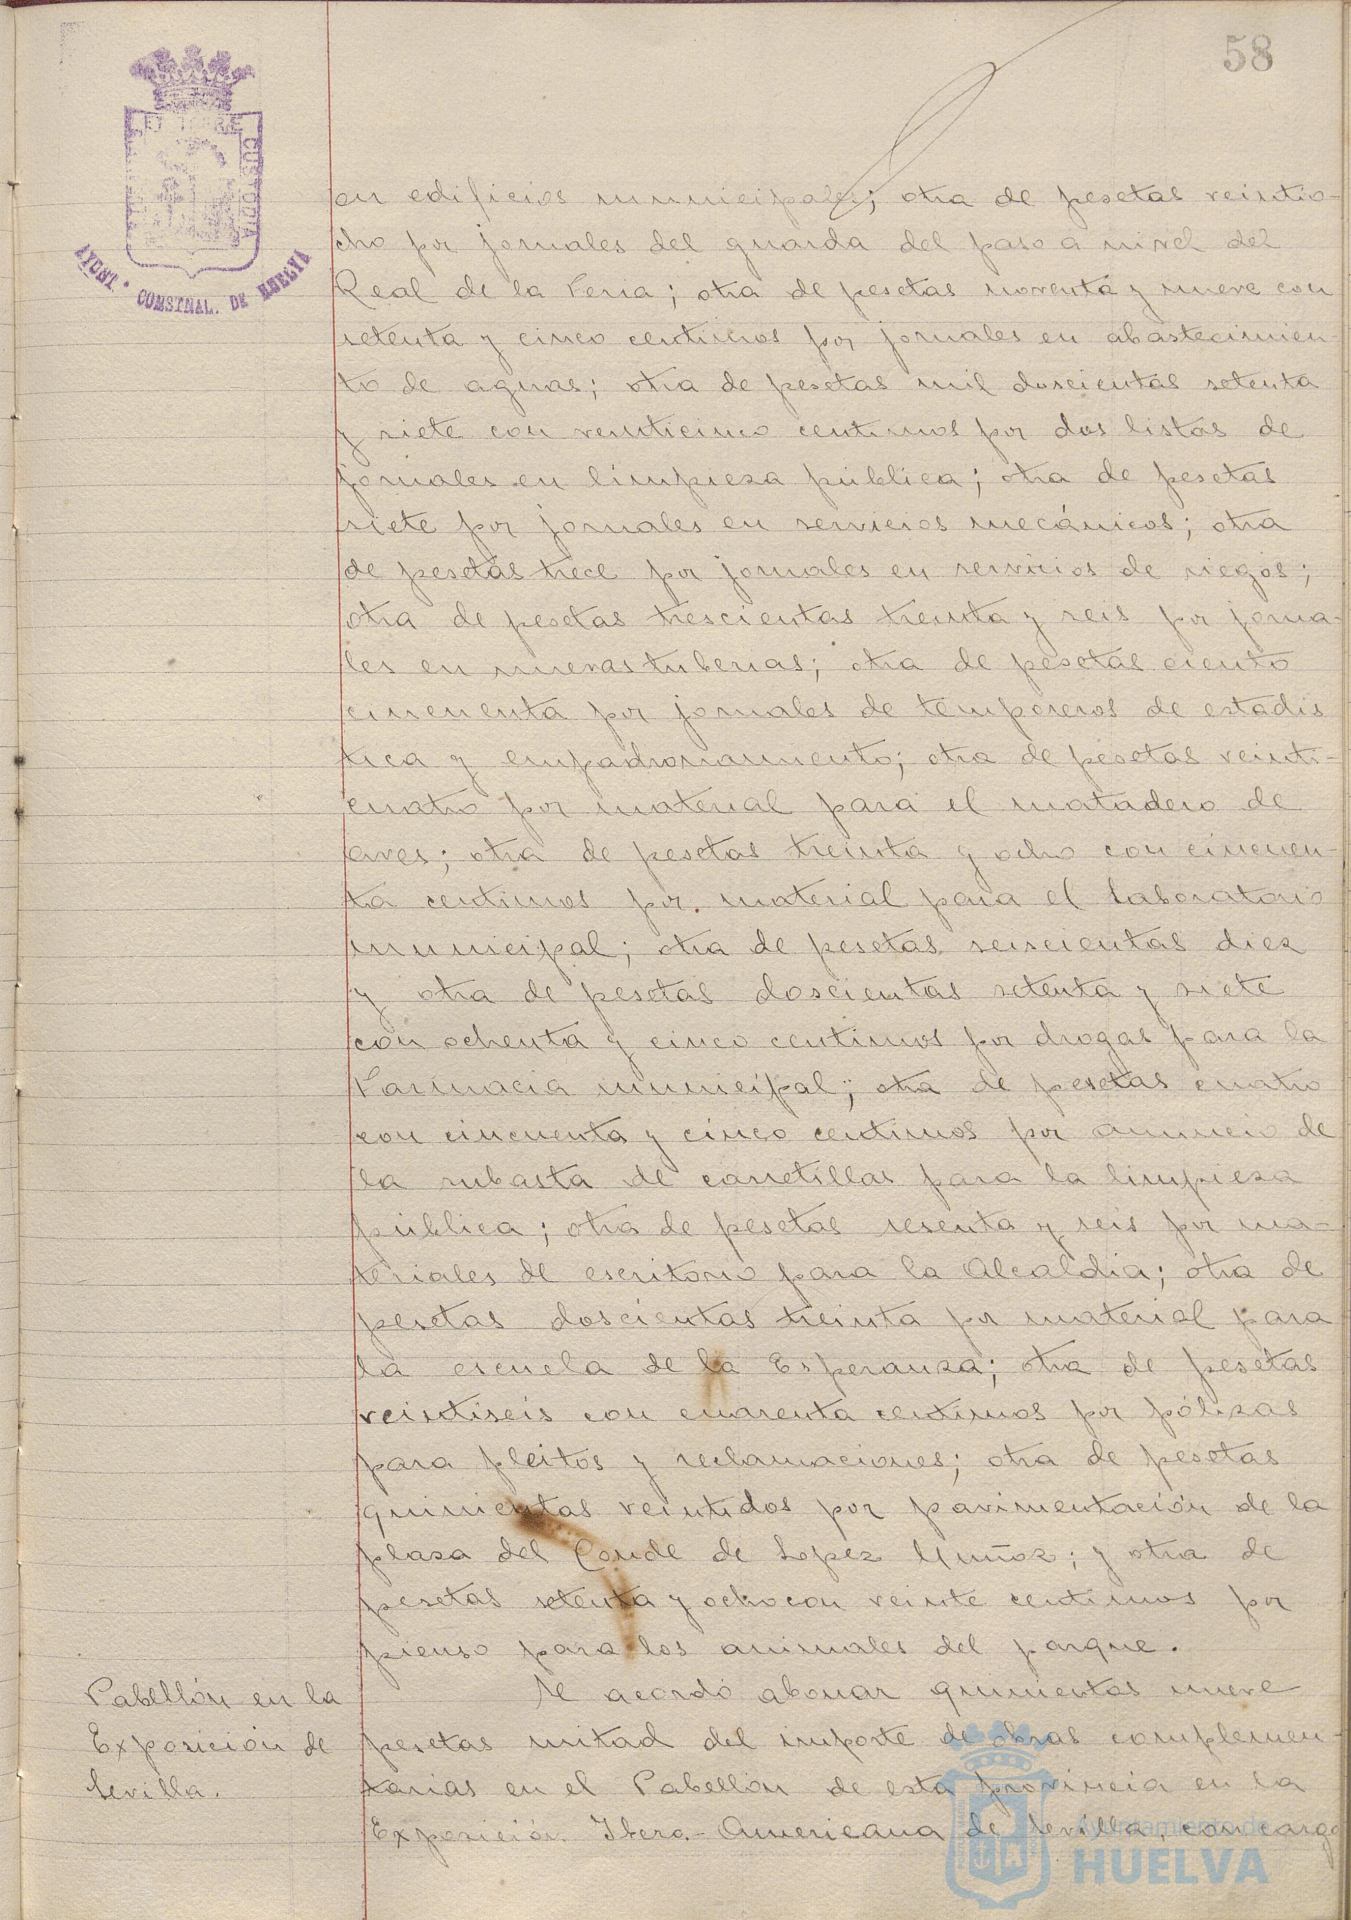 58
PORTUS MARIS ET TERRE CUSTODIA
AYUNT. COMSTNAL. DE HUELVA
en edificios municipales; otra de pesetas veintio-
cho por jornales del guarda del paso a nivel del
Real de la Feria; otra de pesetas noventa y nueve con
setenta y cinco centimos por jornales en abastecimien-
to de aguas; otra de pesetas mil doscientas setenta
y siete con veinticinco centimos por dos listas de
jornales en limpieza pública; otra de pesetas
siete por jornales en servicios mecánicos; otra
de pesetas trece por jornales en servicios de riegos;
otra de pesetas trescientas treinta y seis por jorna-
les en nuevas tuberias; otra de pesetas ciento
cincuenta por jornales de temporeros de estadis
tica y empadronamiento; otra de pesetas veinti-
cuatro por material para el matadero de
aves; otra de pesetas treinta y ocho con cincuen-
ta centimos por material para el Laboratorio
municipal; otra de pesetas seiscientas diez
y otra de pesetas doscientas setenta y siete
con ochenta y cinco centimos por drogas para la
Farmacia municipal; otra de pesetas cuatro
con cincuenta y cinco centimos por anuncio de
la subasta de carretillas para la limpieza
pública; otra de pesetas sesenta y seis por ma-
teriales de escritorio para la Alcaldia; otra de
pesetas doscientas treinta por material para
la escuela de la Esperanza; otra de pesetas
veintiseis con cuarenta centimos por pólizas
para pleitos y reclamaciones; otra de pesetas
quinientas veintidos por pavimentación de la
plaza del Conde de Lopez Muñoz; y otra de
pesetas setenta y ocho con veinte centimos por
pienso para los animales del parque.
Pabellón en la
Exposición de
Sevilla.
Se acordó abonar quinientas nueve
pesetas mitad del importe de obras complemen-
tarias en el Pabellón de esta provincia en la
Exposición Ibero-Americana de Sevilla, con cargo
Ayuntamiento de
HUELVA